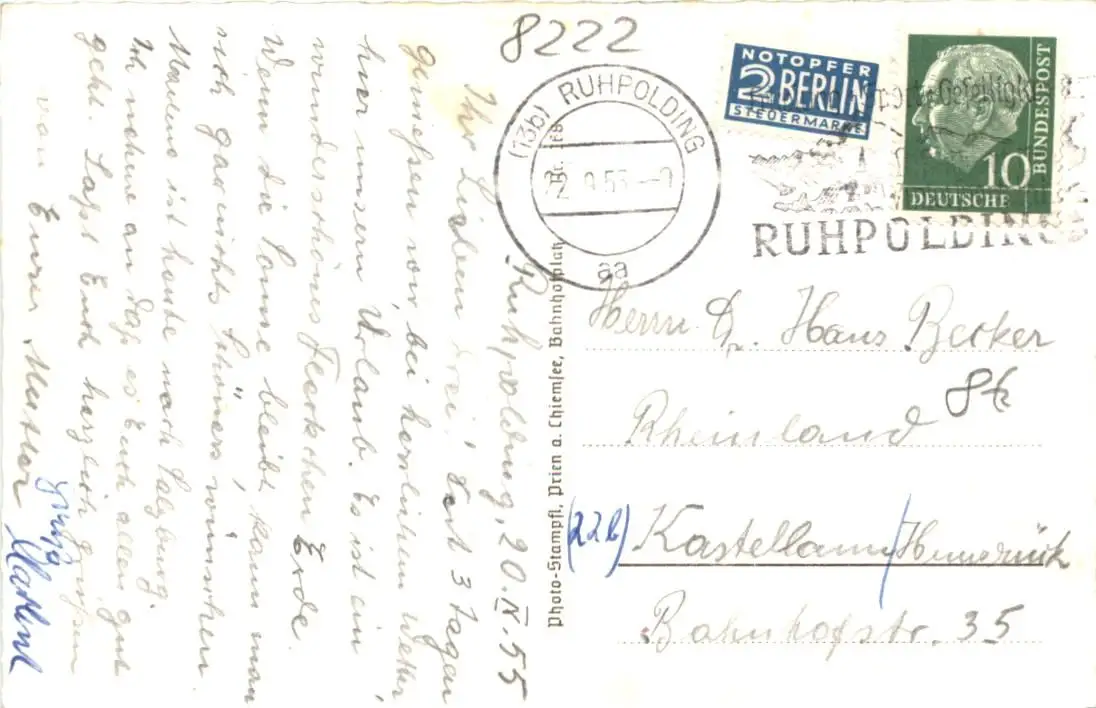 8222
(13b) RUHPOLDING
aa
NOTOPFER
2 BERLIN
STEUERMARKE
10
DEUTSCHE
BUNDESPOST
RUHPOLDING
Ruhpolding, 20. IX. 55
Ihr Lieben drei! Seit 3 Tagen
genießen wir, bei herrlichem Wetter
hier unsern Urlaub. Es ist ein
wunderschönes Fleckchen Erde.
Wenn die Sonne bleibt, kann man
sich garnichts Schöneres wünschen.
ist heute nach Salzburg.
Ich nehme an daß es Euch allen gut
geht. Laßt Euch herzlich grüßen
von Eurer Mutter
Photo-Stampfl, Prien a. Chiemsee, Bahnhofplatz
Herrn Dr. Hans Becker
Rheinland
(22b) Kastellaun/Hunsrück
Bahnhofstr. 35